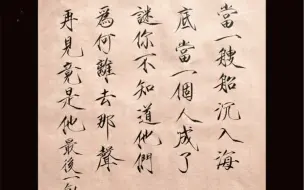 當一艘船沉入海
底當一個人成了
謎你不知道他們
為何離去那聲
再見竟是他最後一句